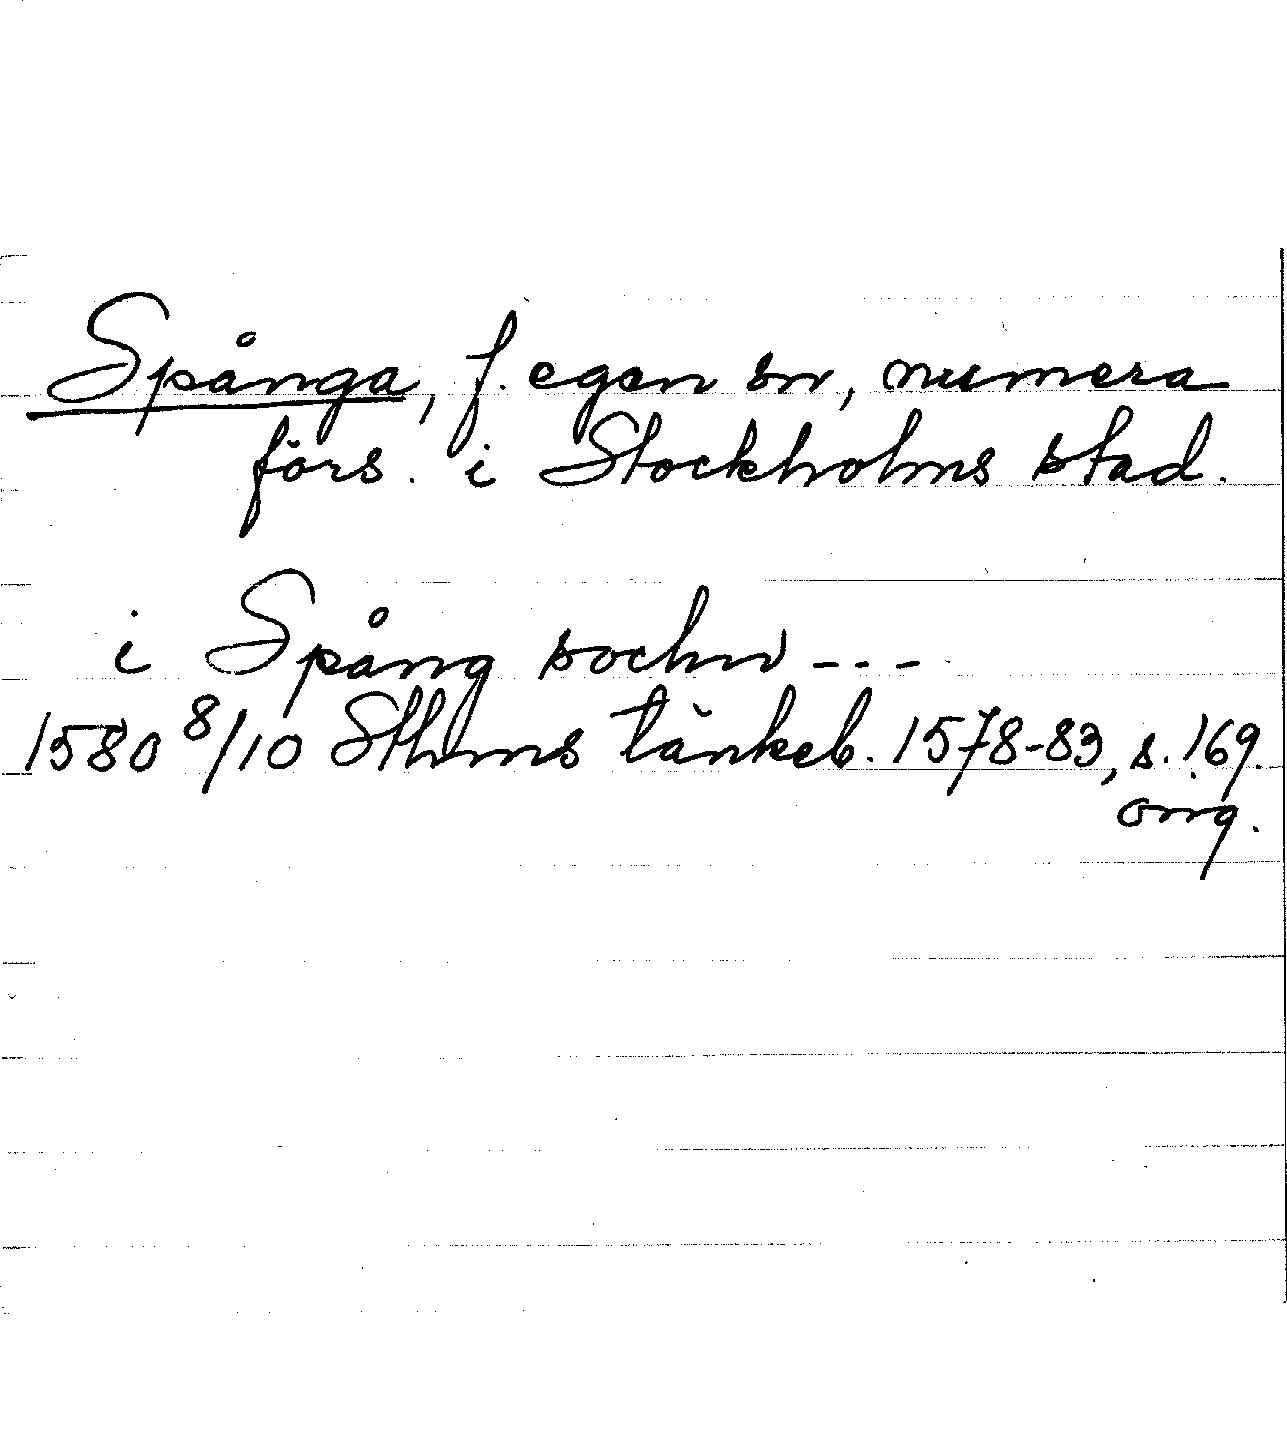 Spånga, f. egen sn, numera
förs. i Stockholms stad.
i Spång sochn ---
1580 8/10 Sthms tänkeb. 1578-83, s. 169.
orig.